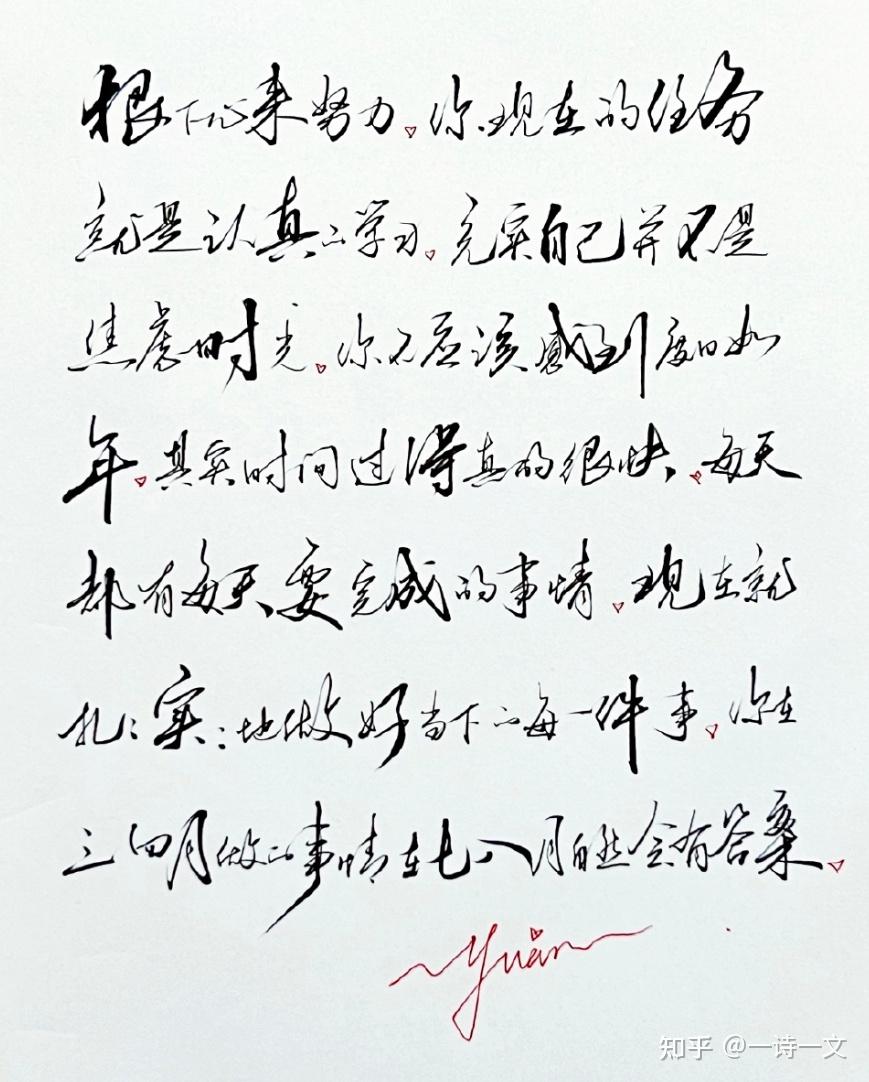 狠下心来努力 你现在的任务
就是认真的学习 充实自己并不是
焦虑时光 你不应该感到度日如
年 其实时间过得真的很快 每天
都有每天要完成的事情 现在就
扎々实々地做好当下的每一件事 你在
三四月做的事情在七八月自然会有答案
Yuan
知乎 @一诗一文